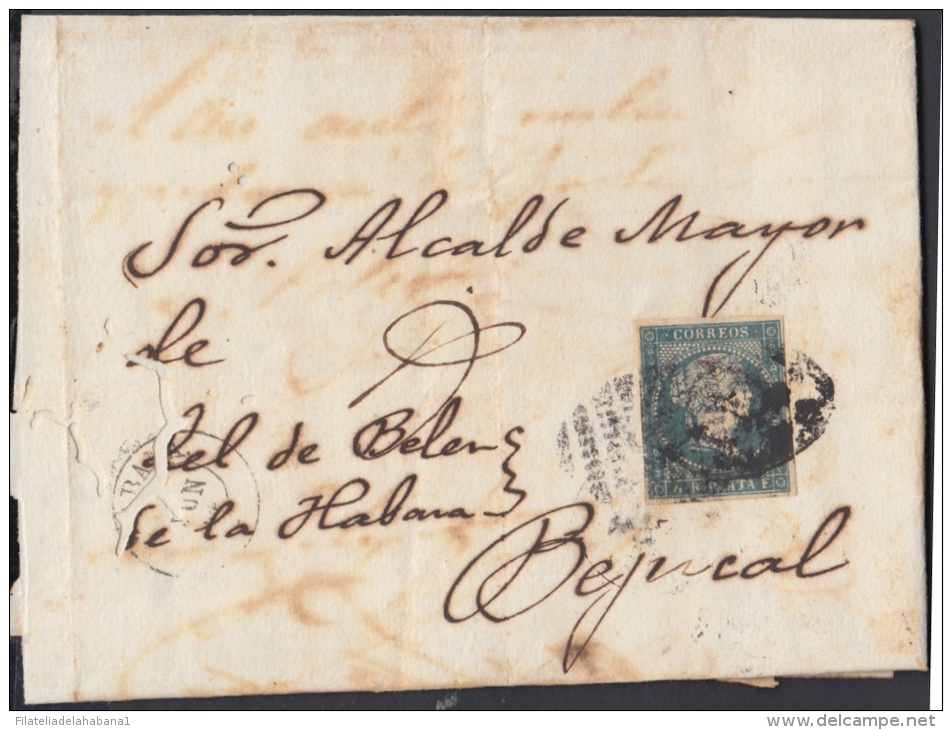 Sor. Alcalde Mayor
de
del de Belen
de la Habana
Bejucal
CORREOS
½ R. PLATA F.
BA
JUN
Filateliadelahabana1
http://www.delcampe.net